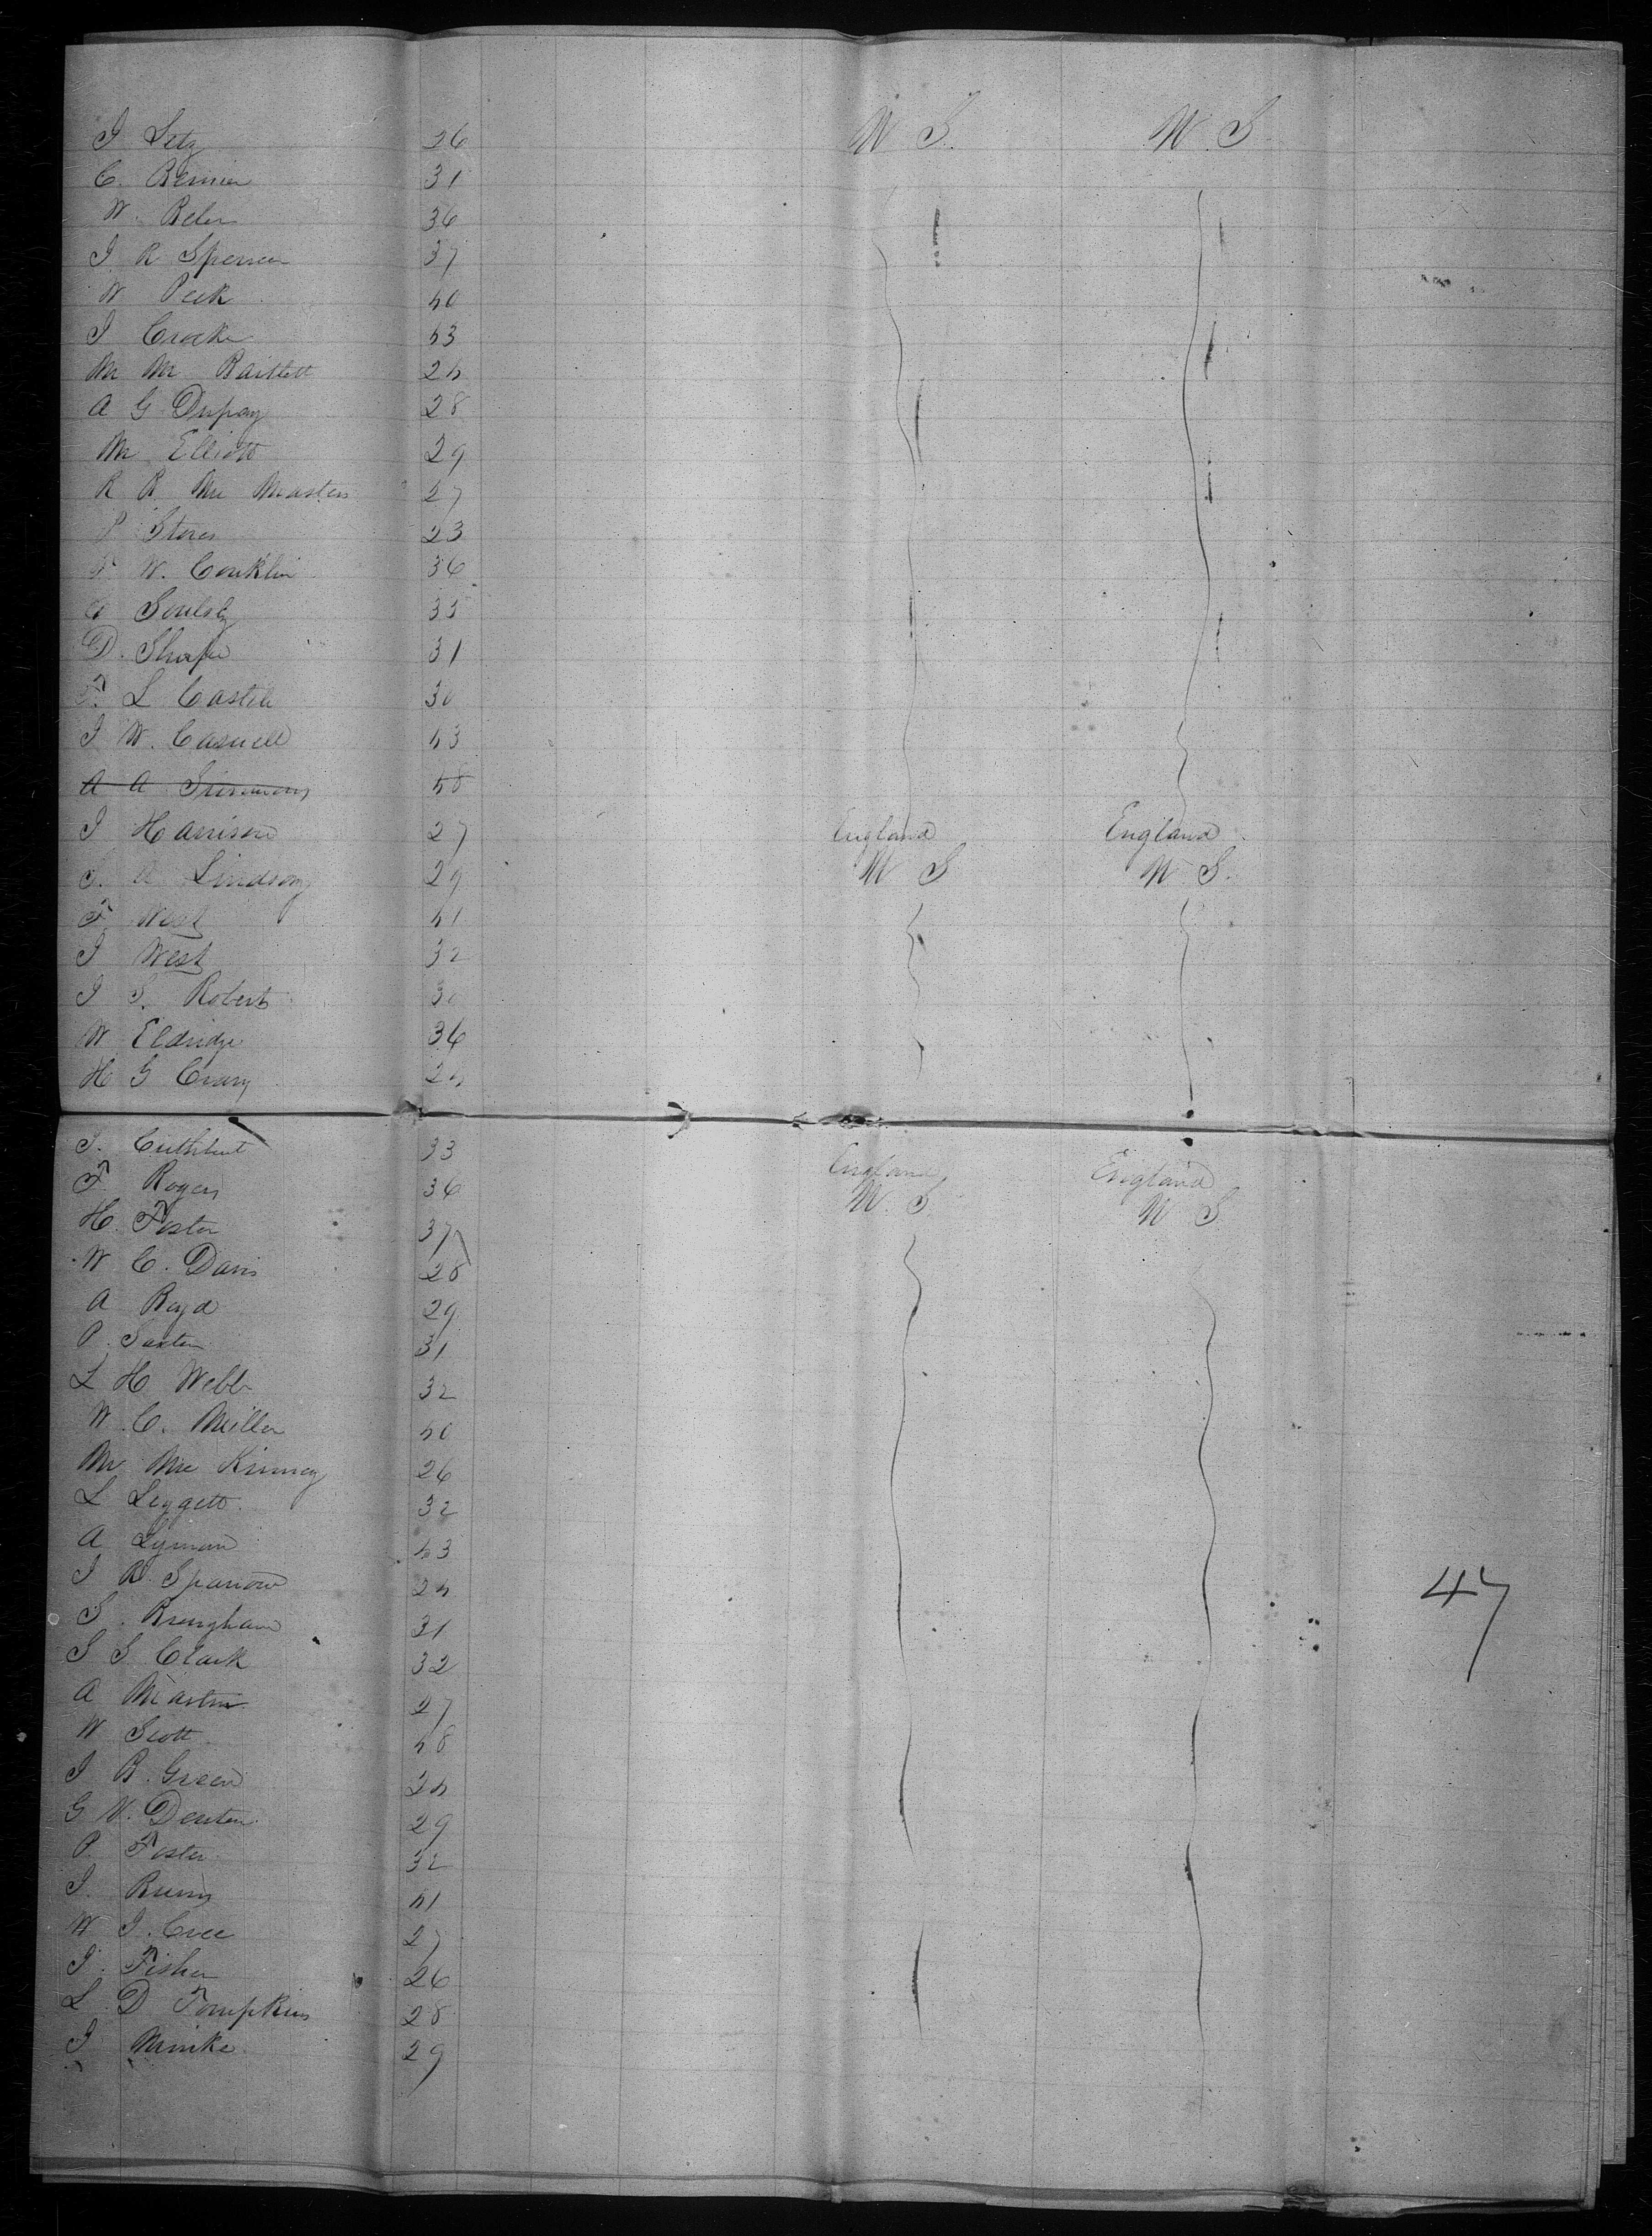 I Setz 26 U S. U. S.
C. Bernier 31
W. Reler 36
I R Spencer 37
W Peck 40
I Crocker 43
M M Bartlett 24
A G Dupay 28
M Elliott 29
R R Mc Masters 27
P Stores 23
F W. Conklin 36
C Soulsby 33
D. Sharpe 31
F. L Castile 30
I W. Caswell 43
A A Simmons 48
I Harrison 27 England England
S. A Lindsay 29 U S U S.
F West 41
I West 32
I S. Roberts 30
W Eldridge 36
H G Crary 24
I. Cuthbert 33 England England
F Rogers 36 U. S. U S
H. Foster 37
W C. Davis 28
A Boyd 29
P. Saxton 31
L H Webb 32
W. C. Miller 40
M Mc Kinney 26
L Leggett 32
A Lyman 43
I R. Sparrow 24
S. Brengham 31
S S Clark 32
A Martin 27
W Scott 48
I B. Green 34
G W. Denton 29
P. Foster 32
I. Burns 41
W I. Cree 27
I. Fisher 26
L. D Tompkins 28
I Minke 29
47